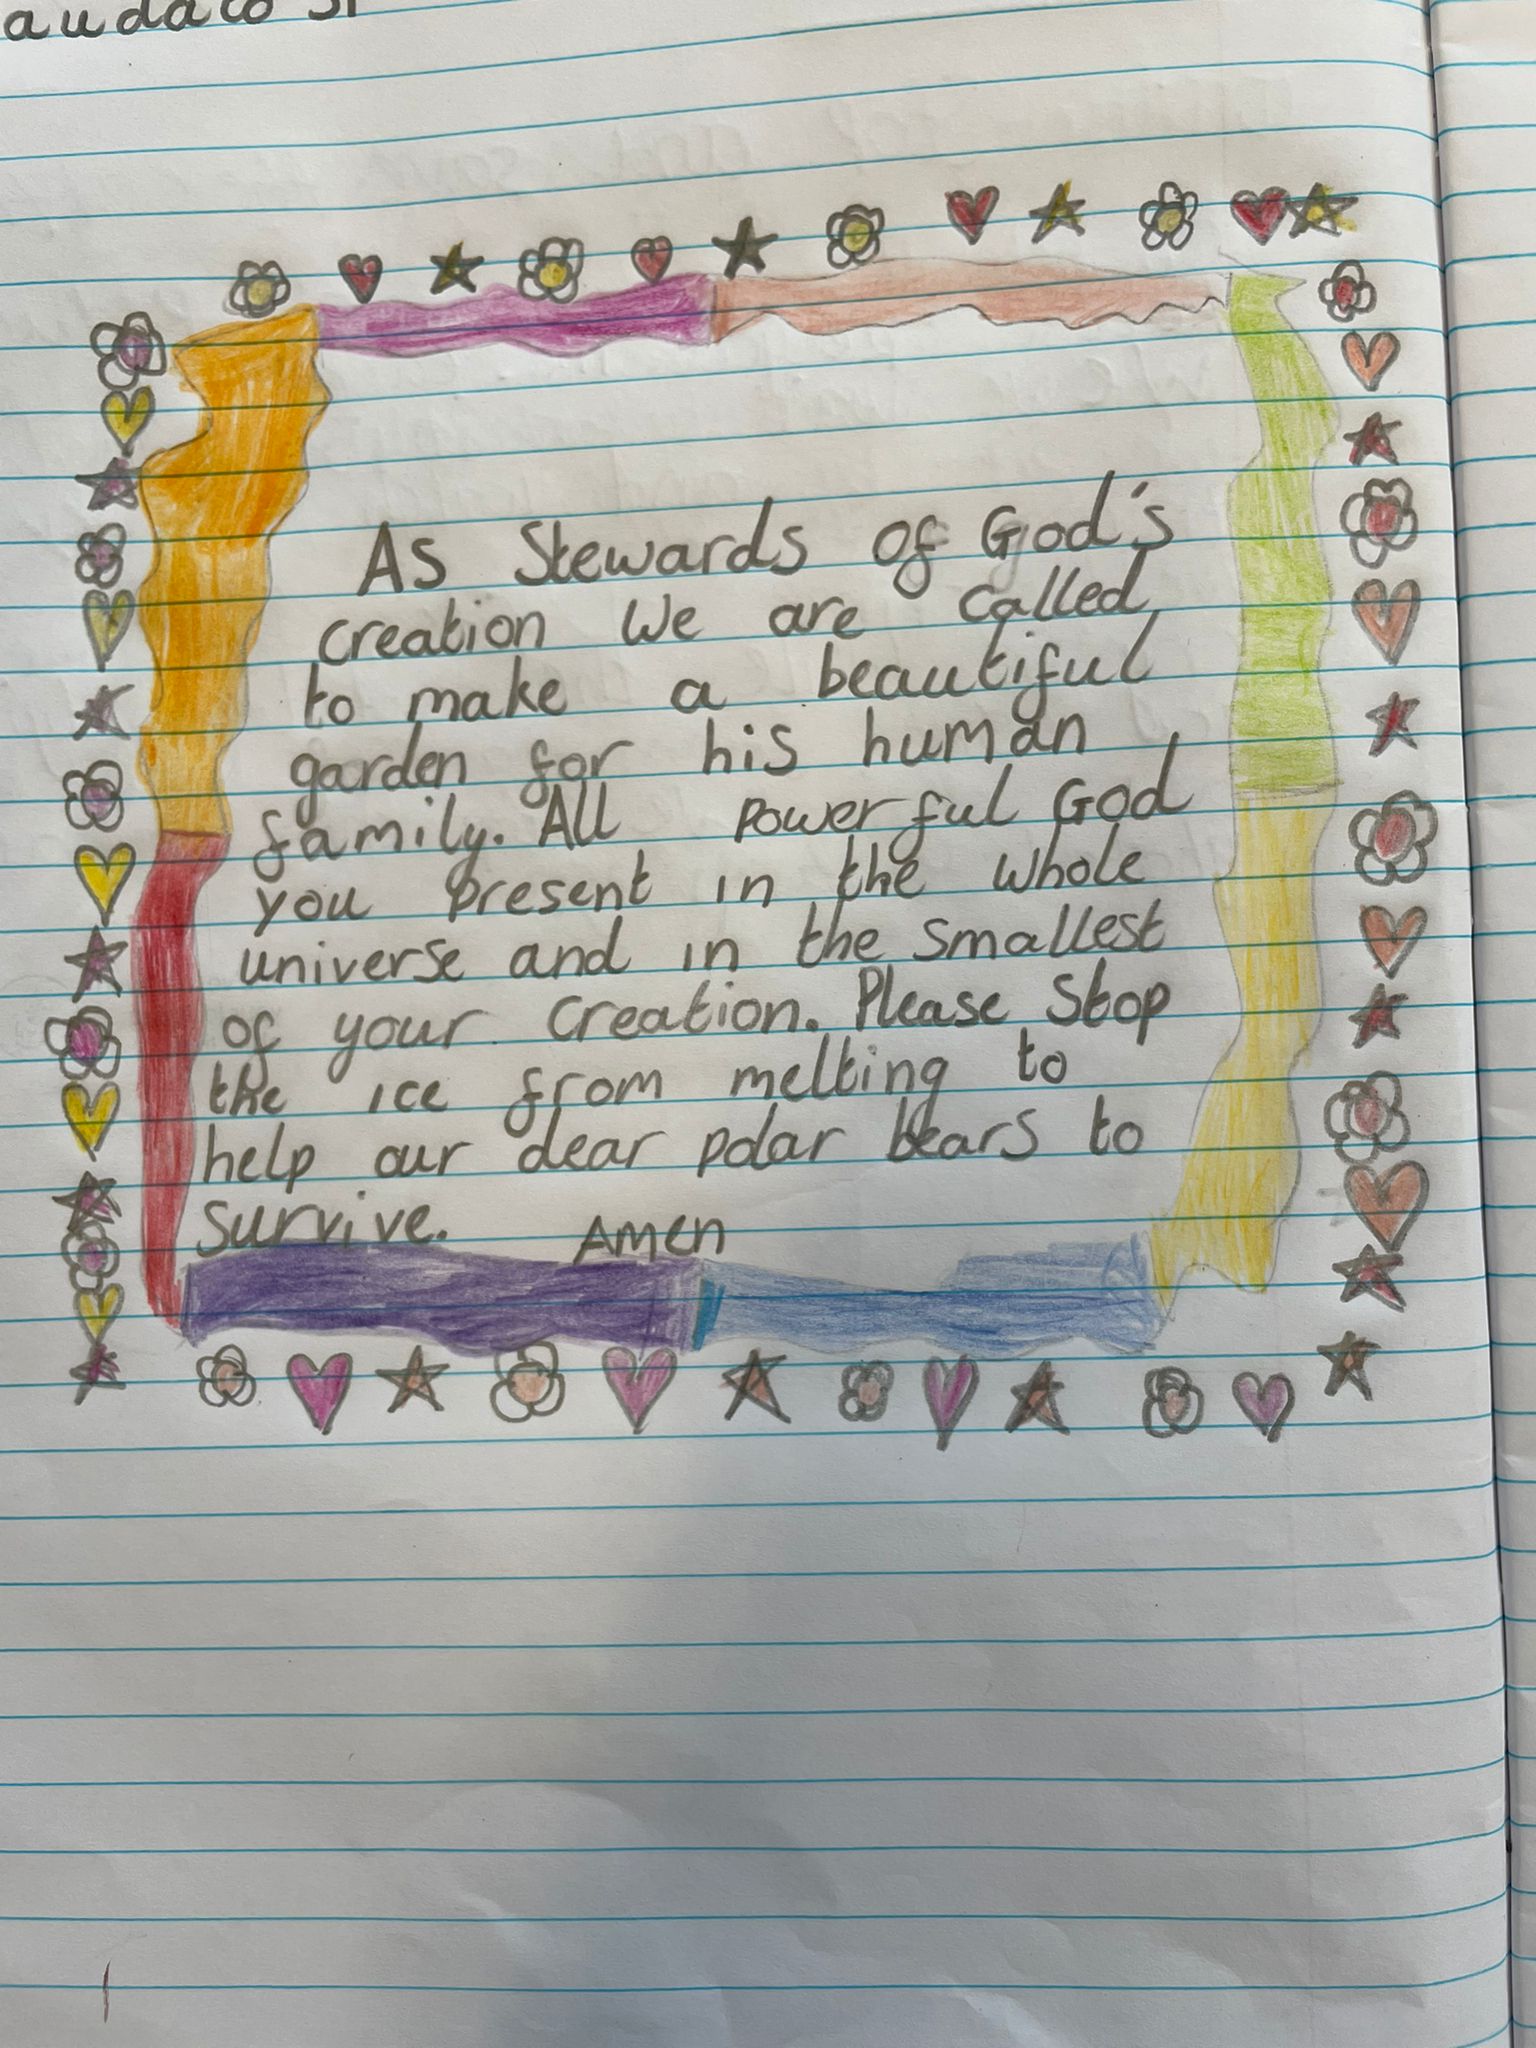 As Stewards of God's
creation We are called
to make a beautiful
garden for his human
family. All powerful God
you present in the whole
universe and in the smallest
of your creation. Please Stop
the ice from melting to
help our dear polar bears to
survive. Amen